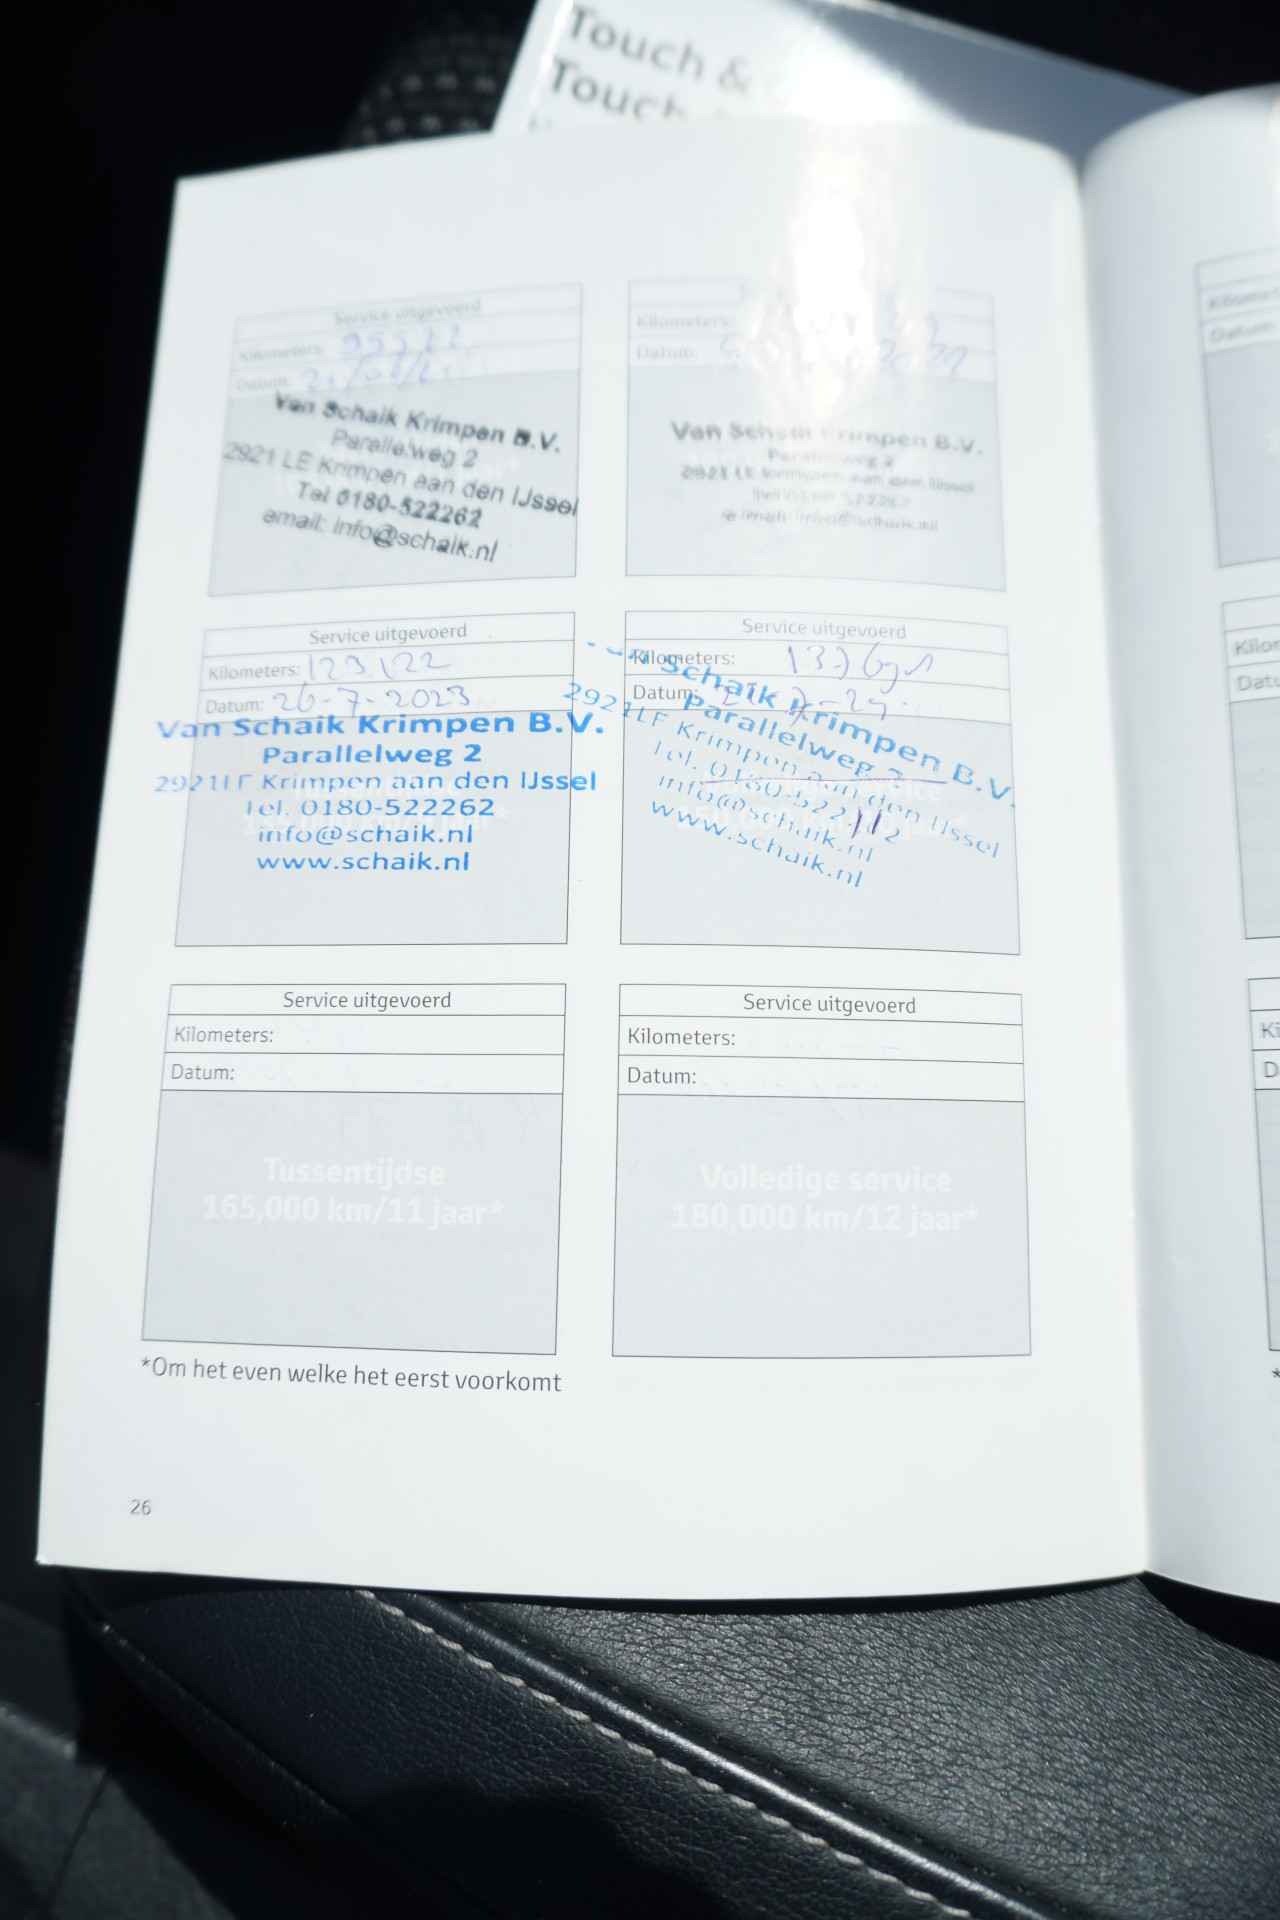 Touch &
Touch
Service uitgevoerd
Kilometers:
Datum:
Van Schaik Krimpen B.V.
Parallelweg 2
2921 LE Krimpen aan den IJssel
Tel 0180-522262
email: info@schaik.nl
Kilometers:
Datum:
Van Schaik Krimpen B.V.
Parallelweg 2
2921 LE Krimpen aan den IJssel
e-mail: info@schaik.nl
Service uitgevoerd
Kilometers: 123122
Datum: 26-7-2023
Van Schaik Krimpen B.V.
Parallelweg 2
2921LE Krimpen aan den IJssel
Tel. 0180-522262
info@schaik.nl
www.schaik.nl
Service uitgevoerd
Kilometers:
Datum:
Schaik Krimpen B.V.
Parallelweg 2
2921LE Krimpen aan den IJssel
Tel. 0180-522
info@schaik.nl
www.schaik.nl
Service uitgevoerd
Kilometers:
Datum:
Tussentijdse
165,000 km/11 jaar*
Service uitgevoerd
Kilometers:
Datum:
Volledige service
180,000 km/12 jaar*
*Om het even welke het eerst voorkomt
26